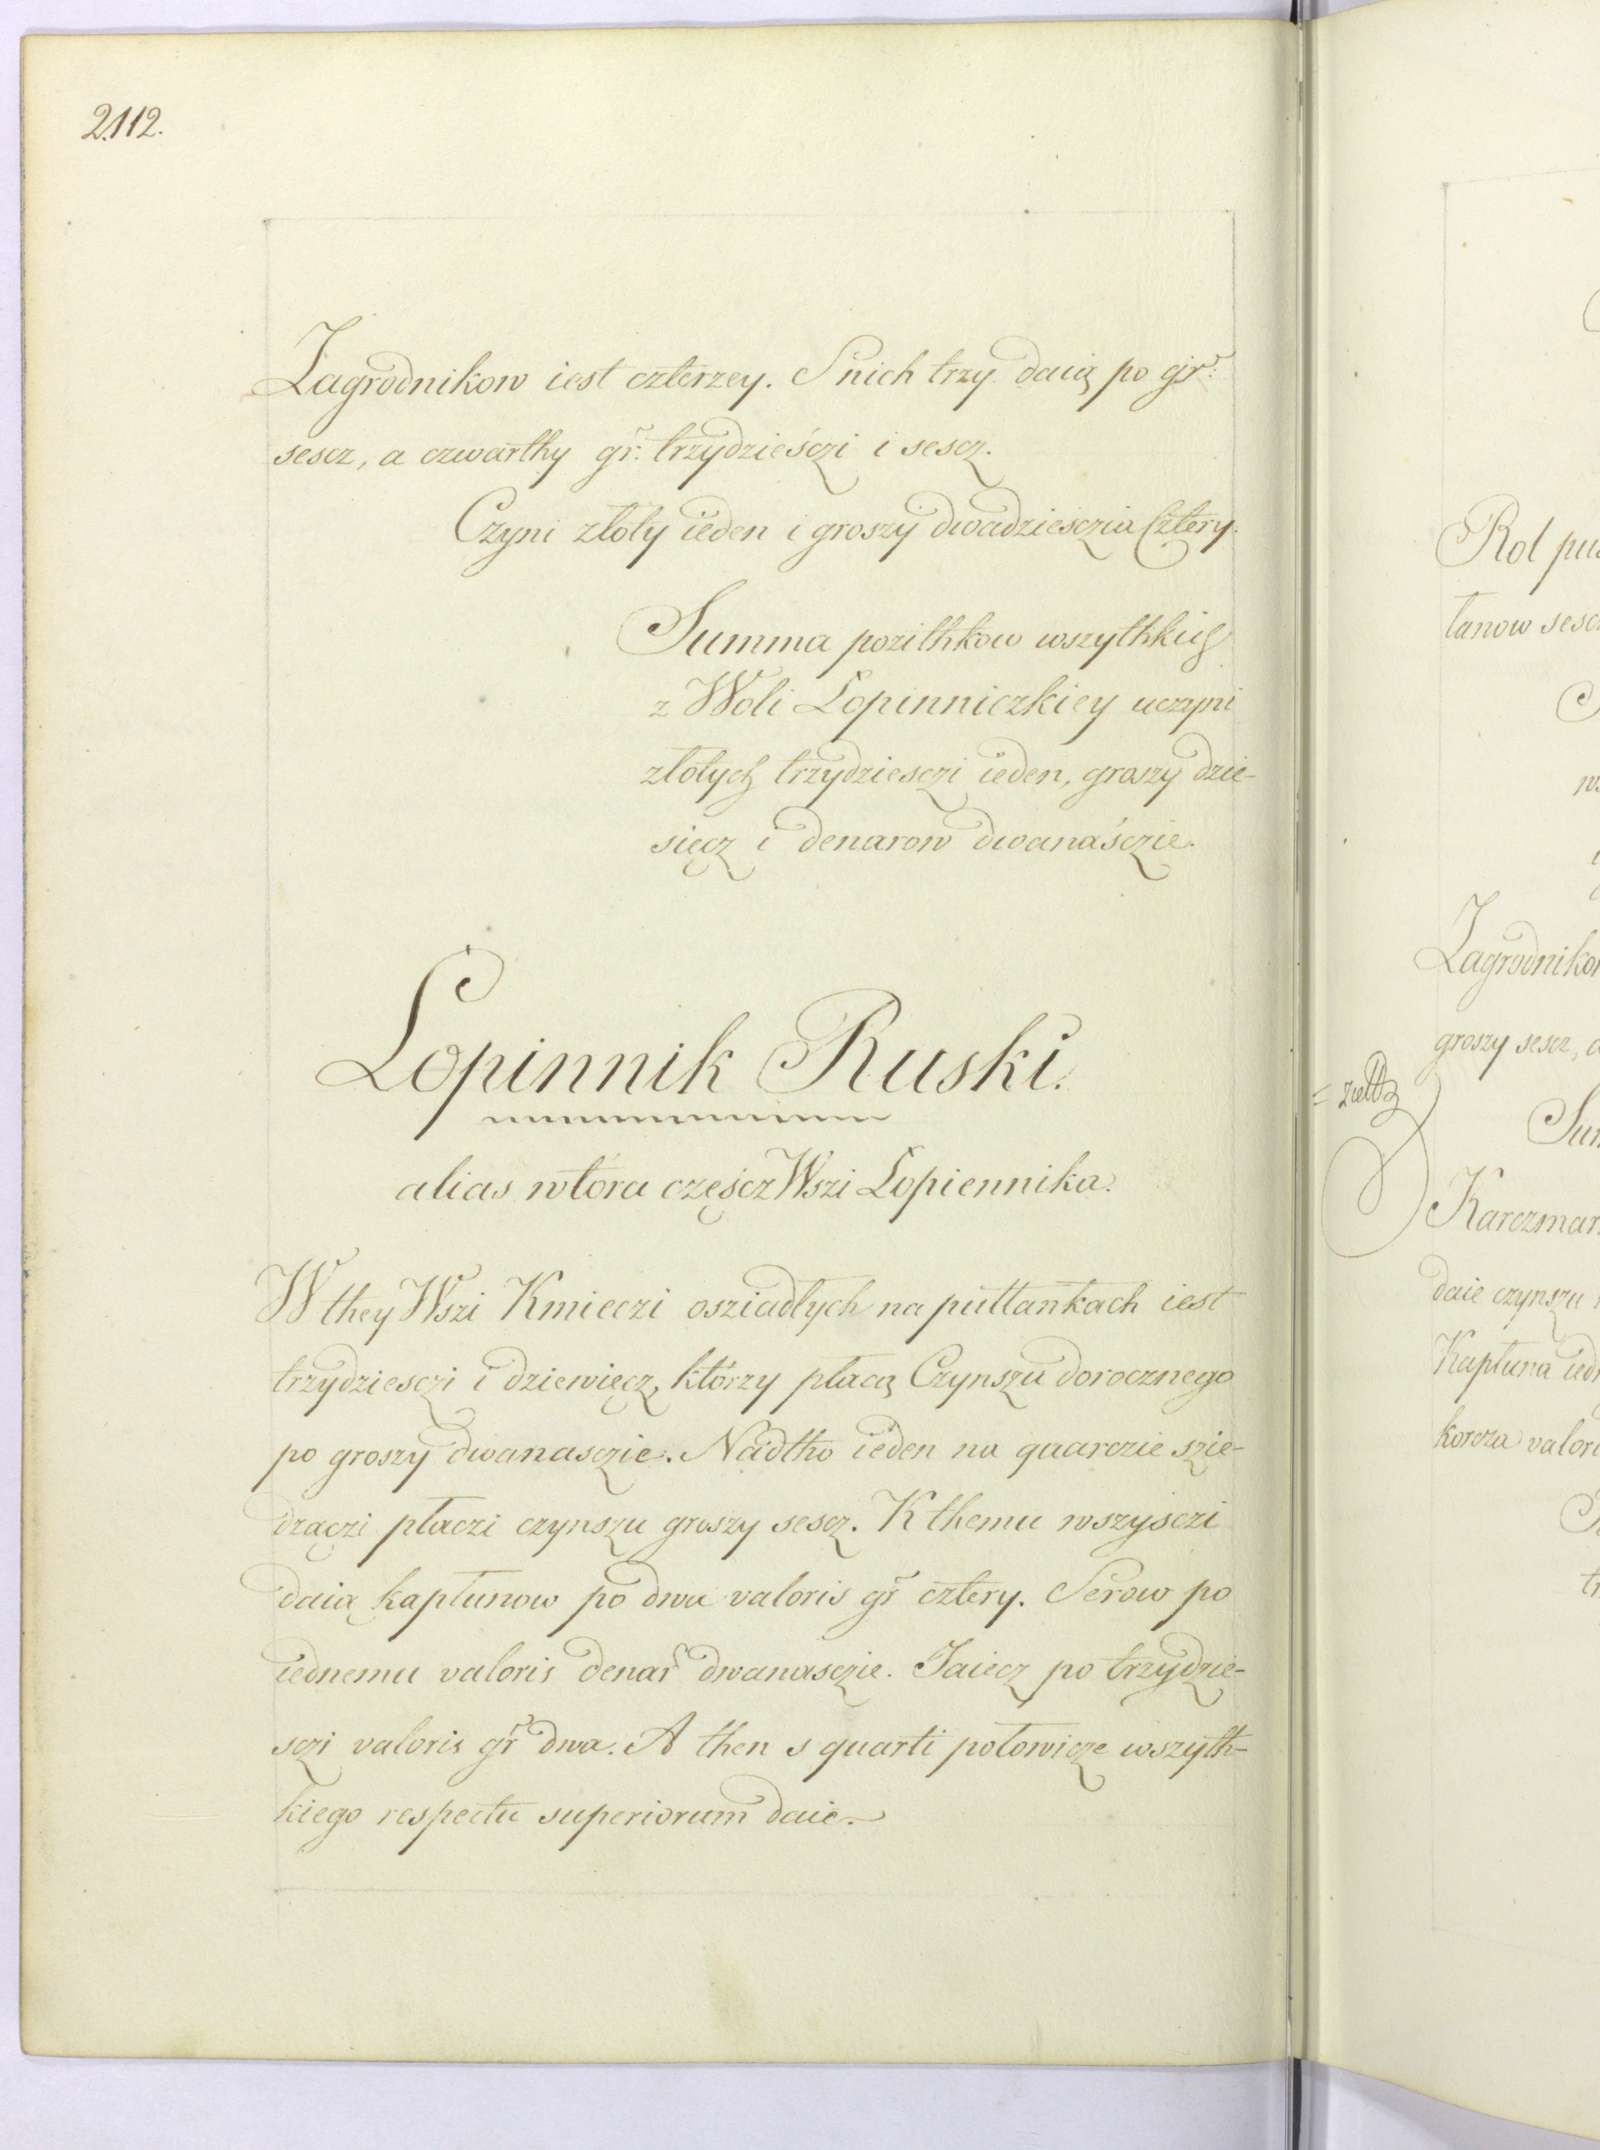 2112.
Zagrodnikow iest czterzey. S nich trzy daią po gr:
sescz, a czwarthy gr: trzydzieśczi i sescz.
Czyni złoty ieden i groszy dwadziesczia Cztery.
Summa pozithkow wszythkich
z Woli Lopinniczkiey uczyni
złotych trzydziesczi ieden, groszy dzie-
sięcz i denarow dwanaśczie.
Lopinnik Ruski.
alias wtora częscz Wszi Lopiennika.
W they Wszi Kmieczi osziadłych na pułłankach iest
trzydziesczi i dziewięcz, którzy płacą Czynszu dorocznego
po groszy dwanasczie. Nadtho ieden na quarczie szie-
dzączi płaczi czynszu groszy sescz. K themu wszysczi
daią kapłunow po dwu valoris gr cztery. Serow po
iednemu valoris denar dwanasczie. Jaiecz po trzydzie-
sczi valoris gr dwa. A then s quarti połowicze wszyth-
kiego respectu superiorum daie.
Rol
łanow
Zagrodnikow
groszy sescz,
Karczmar
daie czynszu
Kapłuna
korcza valori